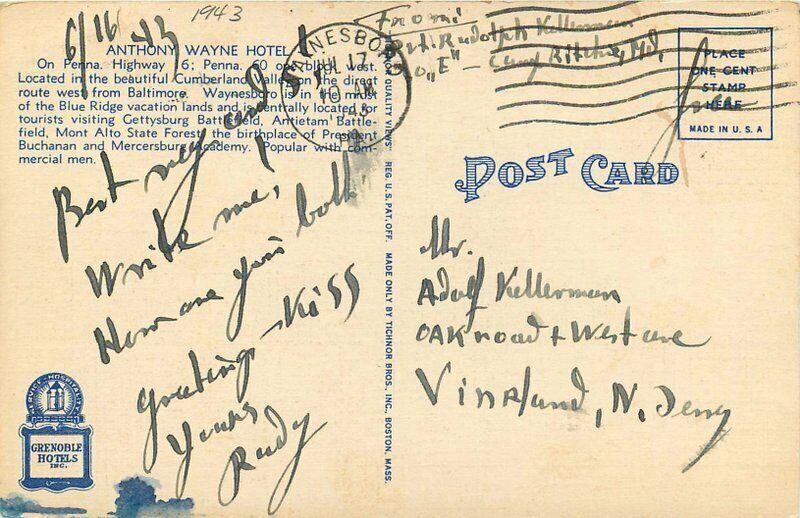 1943
6/16 43
ANTHONY WAYNE HOTEL
On Penna. Highway 16; Penna. 60 or block west.
Located in the beautiful Cumberland Valley on the direct
route west from Baltimore. Waynesboro is in the midst
of the Blue Ridge vacation lands and is centrally located for
tourists visiting Gettysburg Battlefield, Antietam Battle-
field, Mont Alto State Forest, the birthplace of President
Buchanan and Mercersburg Academy. Popular with com-
mercial men.
Best
Write me!
How are you both
greetings - Kiss
Yours
Rudy
SERVICE - HOSPITALITY
GRENOBLE
HOTELS
INC.
QUALITY VIEWS" REG. U.S. PAT. OFF. MADE ONLY BY TICHNOR BROS., INC., BOSTON, MASS.
WAYNESBORO
JUL 17
10 AM
1943
PA.
From:
Pvt. Rudolph Kellerman
Co „E" – Camp Ritchie, Md.
PLACE
ONE CENT
STAMP
HERE
MADE IN U. S. A
free
POST CARD
Mr.
Adolf Kellerman
OAK road + West ave
Vineland, N. Jersey